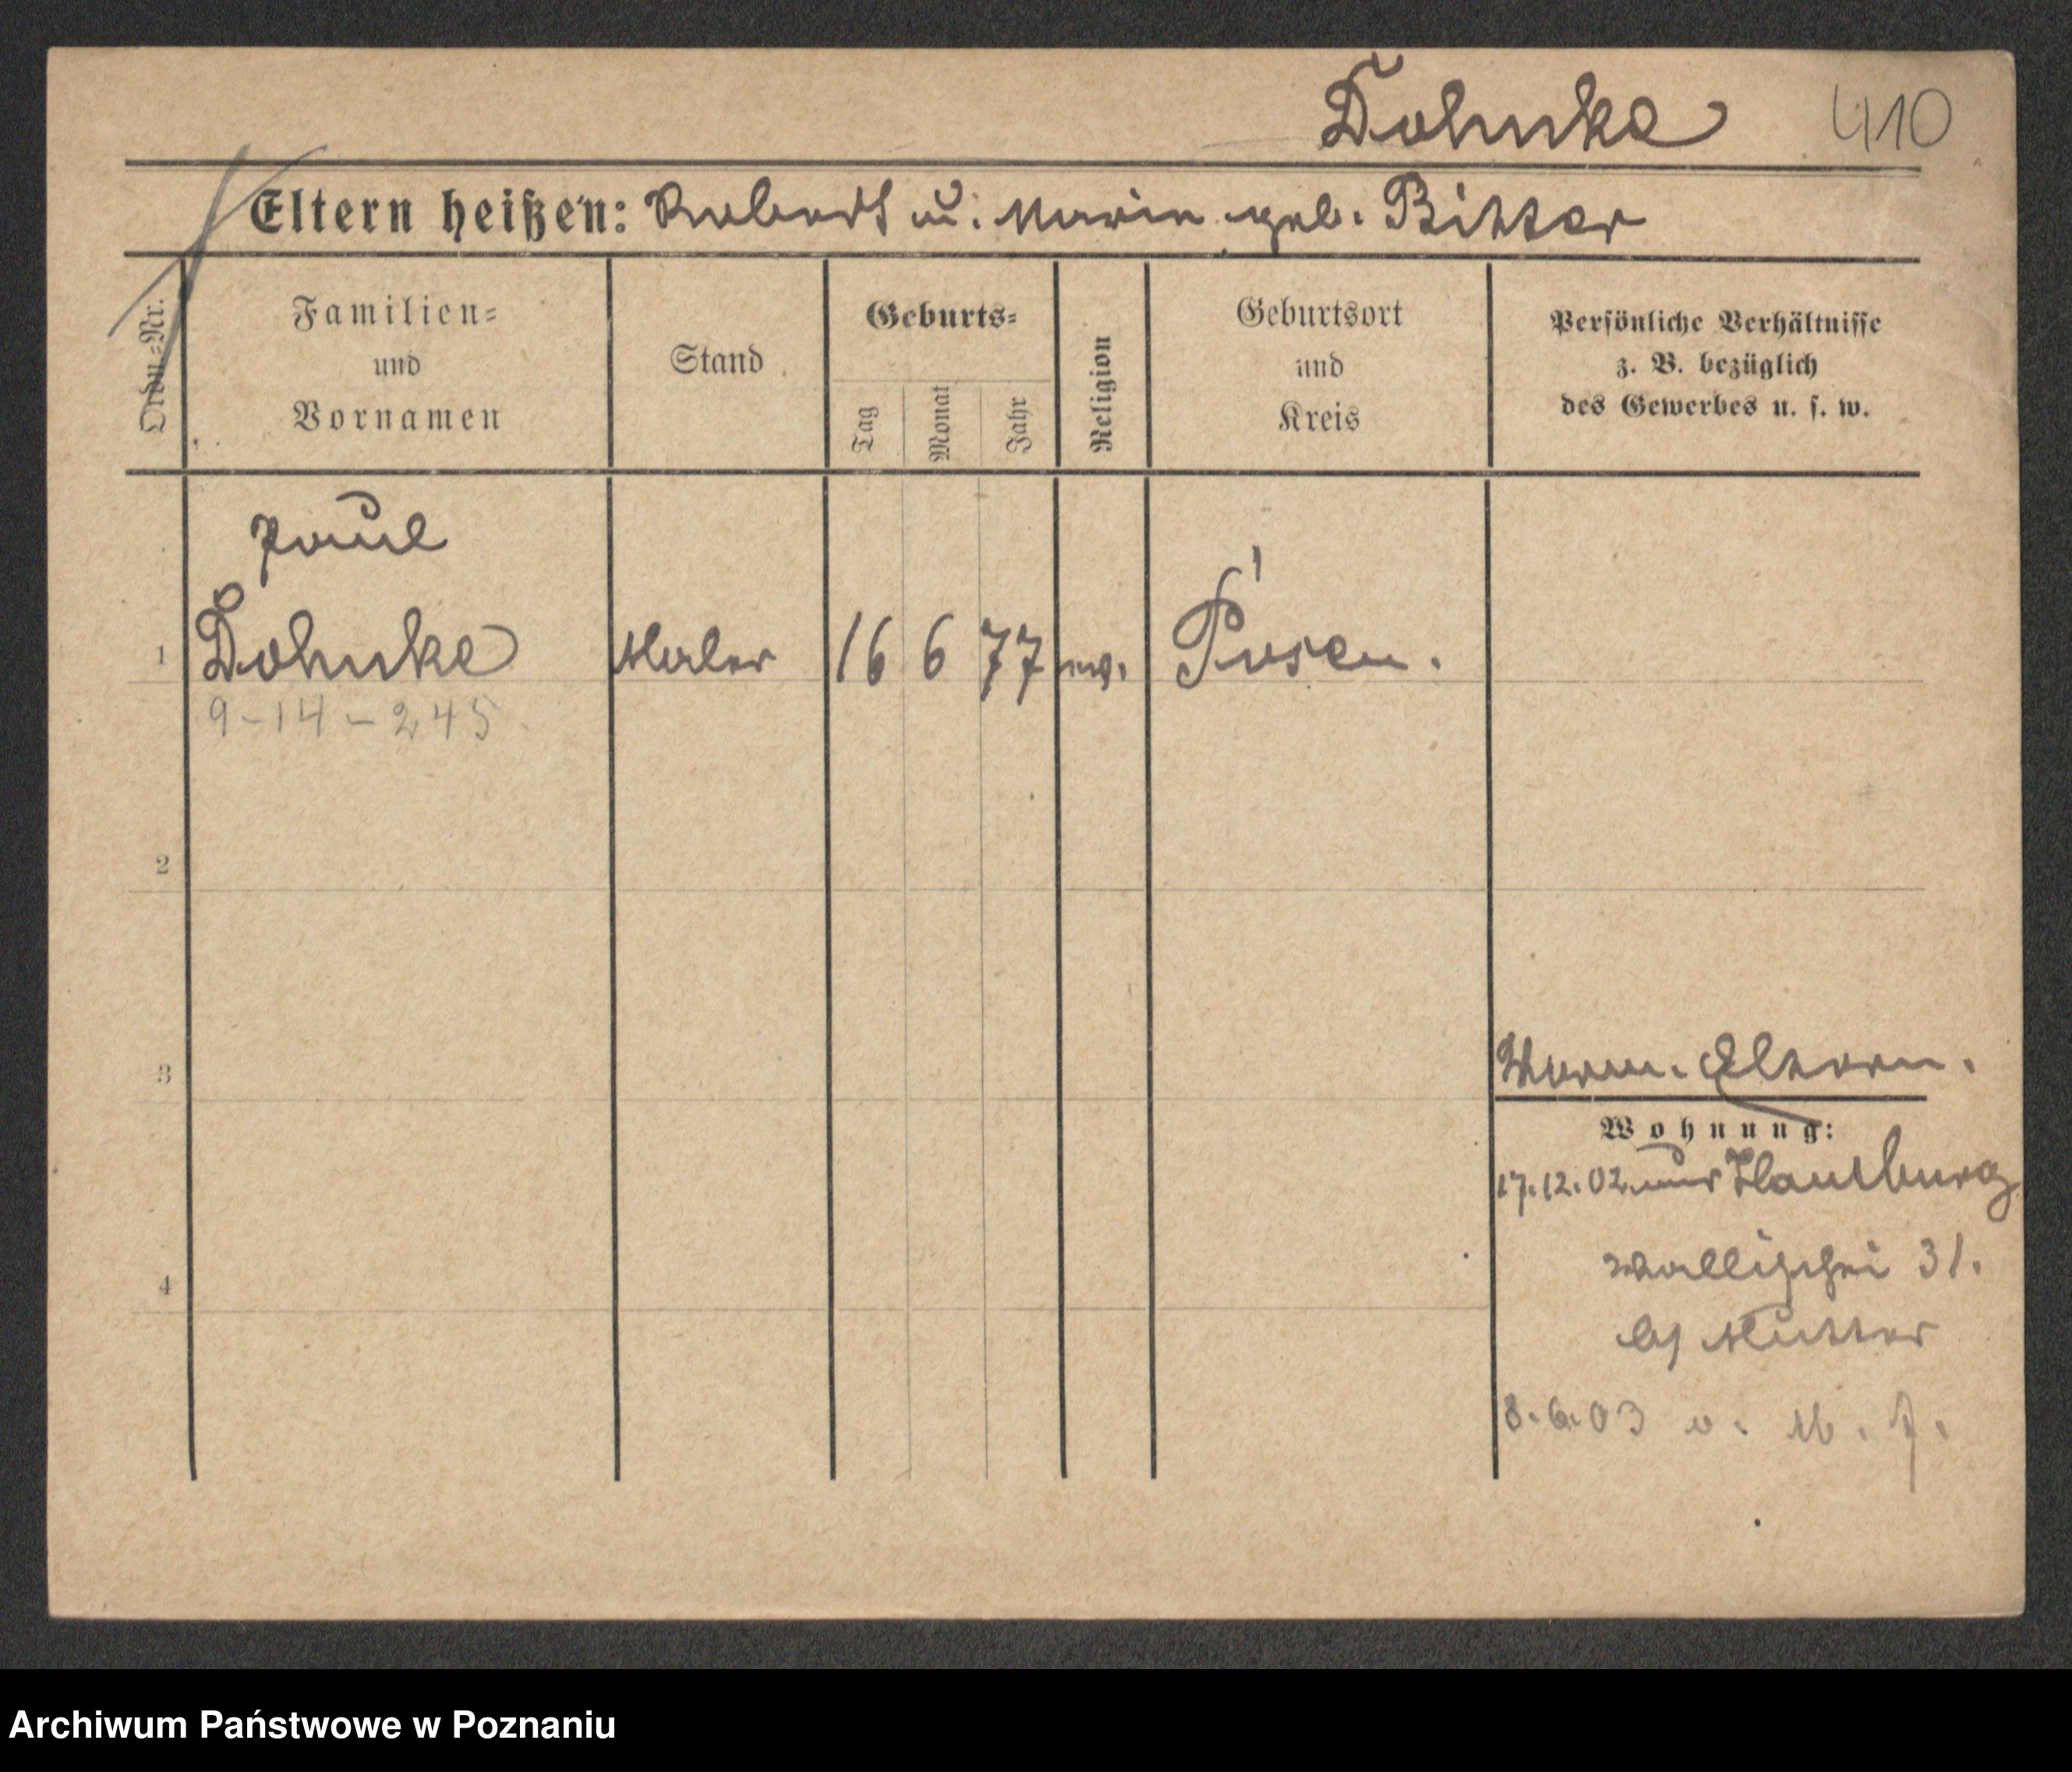 Dohnke 410
Eltern heißen: Robert u. Marie geb. Bitter
Ordn.=Nr.
Familien=
und
Vornamen
Stand
Geburts=
Tag
Monat
Jahr
Religion
Geburtsort
und
Kreis
Persönliche Verhältnisse
z. B. bezüglich
des Gewerbes u. s. w.
Paul
1 Dohnke Maler 16 6 77 ev. Posen.
9-14-245
2
3
Eltern.
Wohnung:
17.12.02 aus Hamburg
4
Wallischei 31.
b/ Mutter
8.6.03 v. M. J.
Archiwum Państwowe w Poznaniu